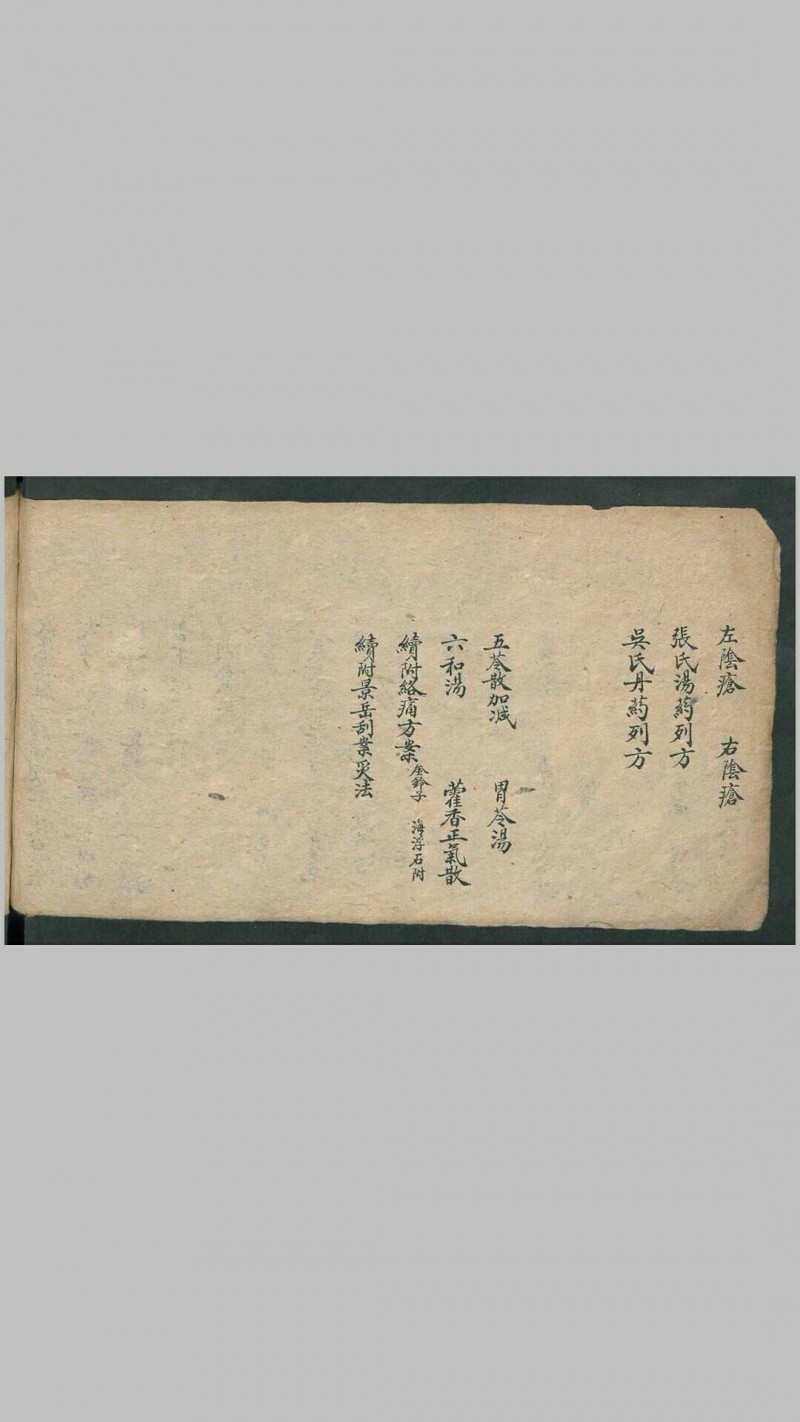 左陰瘡　右陰瘡
張氏湯葯列方
吳氏丹葯列方
五苓散加减　胃苓湯
六和湯　藿香正氣散
續附絡痛方案 金鈴子　海浮石附
續附景岳刮業灵法